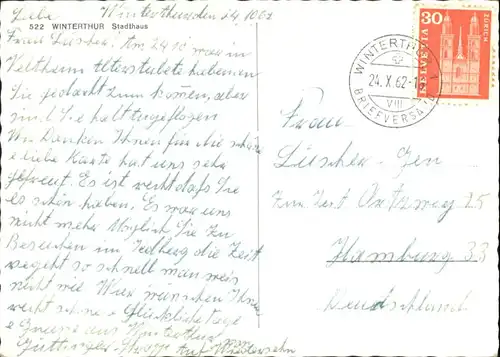 Liebe Winterthur den 24 10 62
522 WINTERTHUR Stadthaus
Frau Lüscher! Am 24 10 war in
Veltheim Altersstube haben an
Sie gedacht zum komen, aber
sind Sie halt ausgeflogen
Wir Danken Ihnen für die schöne
liebe Karte hat uns sehr
gefreut. Es ist recht dafs Sie
es schön haben. Es war uns
nicht mehr Möglich Sie zu
Besuchen im die Zeit
vergeht so schnell man weis
nicht wie Wier wünschen Ihnen
recht schöne Glückliche Tage
Grüsse aus Winterthur
Auf Wiedersehn
HELVETIA 30
ZÜRICH
WINTERTHUR
24. X. 62
VIII
BRIEFVERSAND
Frau
Lüscher-
Zur Zeit 25
Hamburg 33
Deudschland